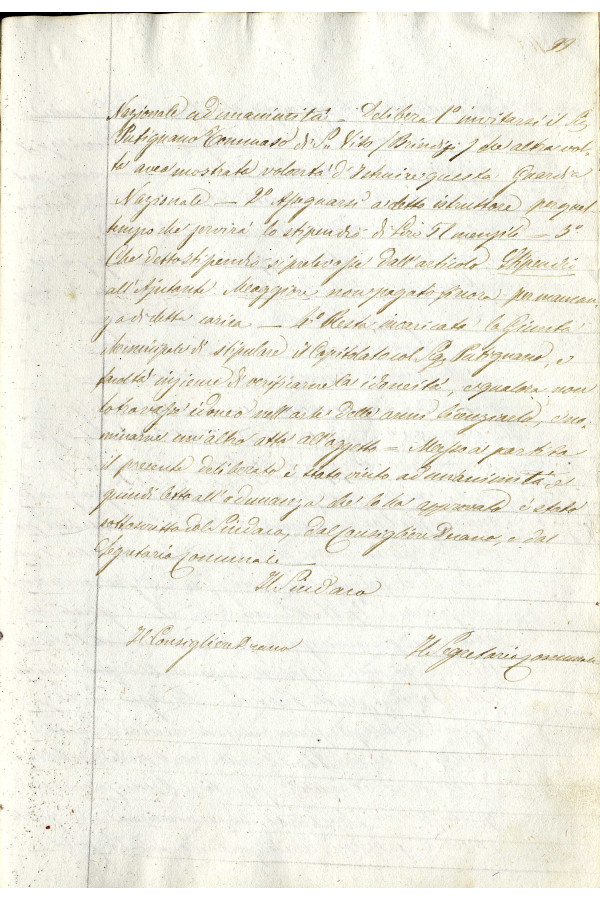 99
Nazionale ad unanimità = Delibera 1º invitarsi il Sig
Putignano Tommaso di S. Vito (Brindisi) che altra vol-
ta avea mostrata volontà d'istruire questa Guardia
Nazionale — 2º Assegnarsi a detto istruttore per quel
tempo che servirà lo stipendio di Lire 51 mensili — 3º
Che detto stipendio si prelevasse dall'articolo Stipendio
all'Ajutante Maggiore non pagato finora per mancan-
za di detta carica — 4º Resta incaricata la Giunta
Municipale di stipulare il Capitolato col Sig Putignano, e
facoltà insieme di verificarne la idoneità, e qualora non
lo trovasse idoneo nell'arte delle armi licenziarlo, e no-
minarne un'altro atto all'oggetto = Messo a partito
il presente deliberato è stato vinto ad unanimità, e
quindi letto all'adunanza che lo ha approvato è stato
sottoscritto dal Sindaco, dal Consigliere Anziano, e dal
Segretario Comunale —
Il Sindaco
Il Consigliere Anziano
Il Segretario Comunale